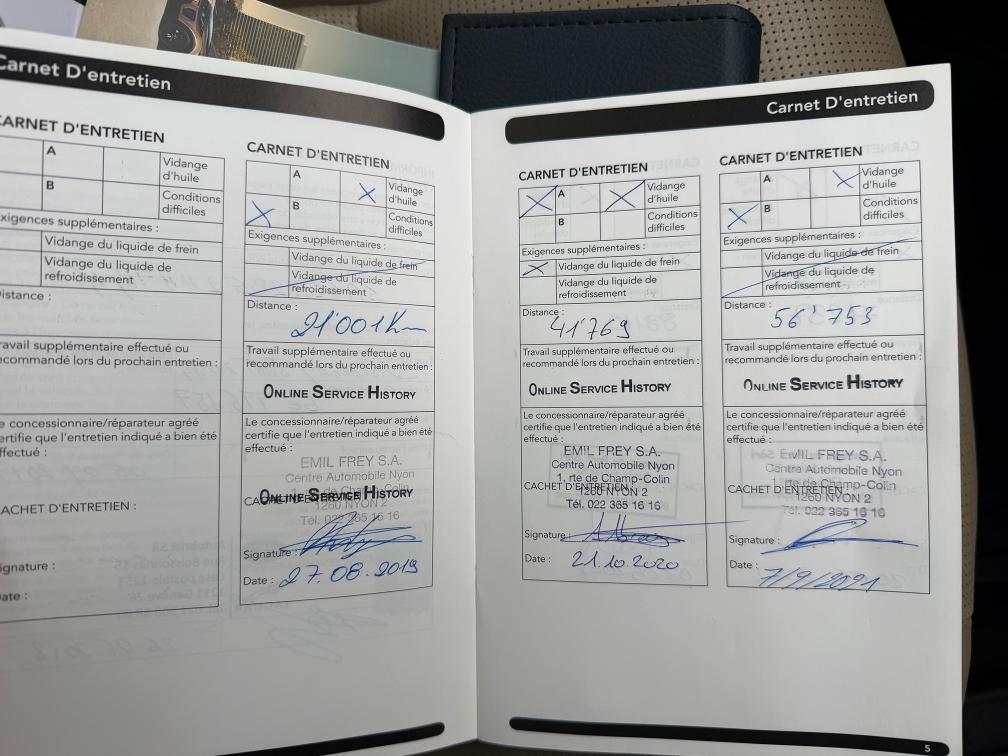 Carnet D'entretien
CARNET D'ENTRETIEN
A
Vidange
d'huile
B
Conditions
difficiles
xigences supplémentaires :
Vidange du liquide de frein
Vidange du liquide de
refroidissement
Distance :
Travail supplémentaire effectué ou
recommandé lors du prochain entretien :
e concessionnaire/réparateur agréé
certifie que l'entretien indiqué a bien été
effectué :
CACHET D'ENTRETIEN :
ignature :
ate :
CARNET D'ENTRETIEN
A
X
Vidange
d'huile
X
B
Conditions
difficiles
Exigences supplémentaires :
Vidange du liquide de frein
Vidange du liquide de
refroidissement
Distance :
21'001 Km
Travail supplémentaire effectué ou
recommandé lors du prochain entretien :
ONLINE SERVICE HISTORY
Le concessionnaire/réparateur agréé
certifie que l'entretien indiqué a bien été
effectué :
EMIL FREY S.A.
Centre Automobile Nyon
ONLINE SERVICE HISTORY
1260 NYON 2
Tél. 022 365 16 16
Signature :
Date : 27.08.2019
Carnet D'entretien
CARNET D'ENTRETIEN
X
A
X
Vidange
d'huile
B
Conditions
difficiles
Exigences supplémentaires :
X
Vidange du liquide de frein
Vidange du liquide de
refroidissement
Distance :
41'769
Travail supplémentaire effectué ou
recommandé lors du prochain entretien :
ONLINE SERVICE HISTORY
Le concessionnaire/réparateur agréé
certifie que l'entretien indiqué a bien été
effectué :
EMIL FREY S.A.
Centre Automobile Nyon
1, rte de Champ-Colin
CACHET D'ENTRETIEN :
1260 NYON 2
Tél. 022 365 16 16
Signature :
Date : 21.10.2020
CARNET D'ENTRETIEN
A
X
Vidange
d'huile
X
B
Conditions
difficiles
Exigences supplémentaires :
Vidange du liquide de frein
Vidange du liquide de
refroidissement
Distance :
56'753
Travail supplémentaire effectué ou
recommandé lors du prochain entretien :
ONLINE SERVICE HISTORY
Le concessionnaire/réparateur agréé
certifie que l'entretien indiqué a bien été
effectué :
EMIL FREY S.A.
Centre Automobile Nyon
rte de Champ-Colin
CACHET D'ENTRETIEN :
1260 NYON 2
Tél. 022 365 16 16
Signature :
Date : 7/9/2021
5